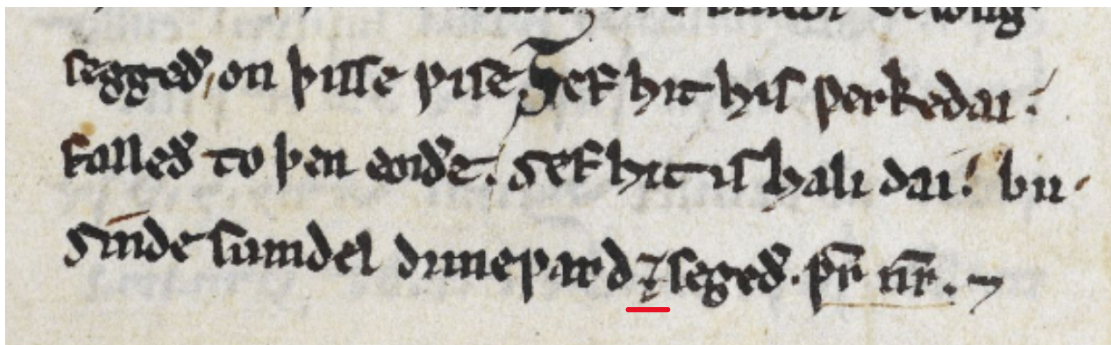 seggeð on þisse ƿise. ȝef hit his ƿerkedai:
falleð to þen eorðe. ȝef hit is hali dai: bu-
ȝinde sumdel duneƿard ⁊ segeð. pr̄ nr̄.